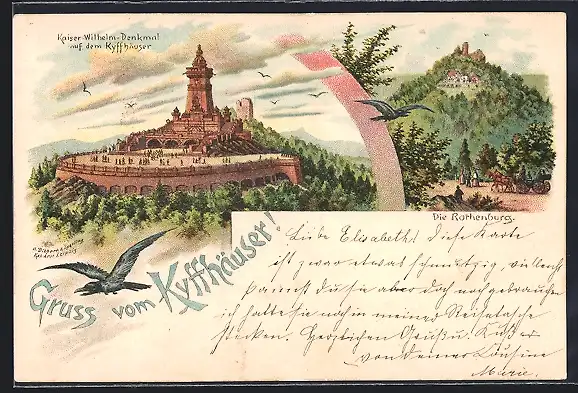 Kaiser-Wilhelm-Denkmal
auf dem Kyffhäuser
Die Rothenburg.
Gruss vom Kyffhäuser!
Liebe Elisabeth! Diese Karte
ist zwar etwas schmutzig, vielleicht
kannst du sie aber doch noch gebrauchen
ich hatte sie noch in meiner Reisetasche
stecken. Herzlichen Gruß u. Kuß
von deiner Cousine
Marie.